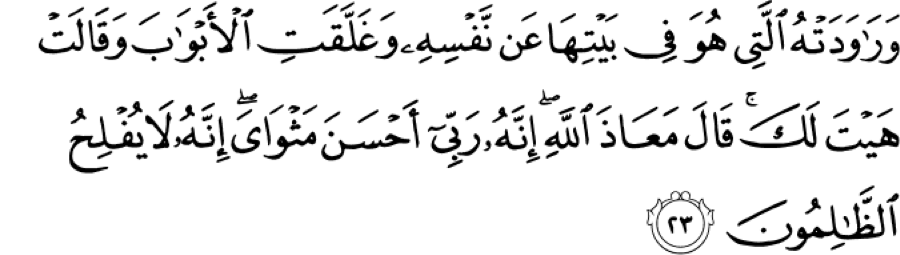 وَرَٰوَدَتْهُ ٱلَّتِى هُوَ فِى بَيْتِهَا عَن نَّفْسِهِۦ وَغَلَّقَتِ ٱلْأَبْوَٰبَ وَقَالَتْ
هَيْتَ لَكَ ۚ قَالَ مَعَاذَ ٱللَّهِ ۖ إِنَّهُۥ رَبِّىٓ أَحْسَنَ مَثْوَاىَ ۖ إِنَّهُۥ لَا يُفْلِحُ
ٱلظَّٰلِمُونَ ٢٣